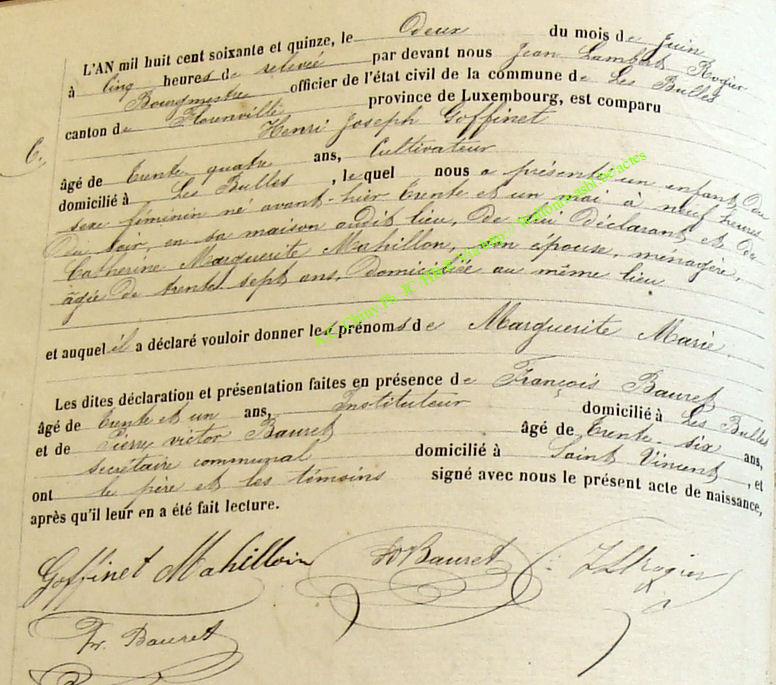 L'AN mil huit cent soixante et quinze, le deux du mois de Juin
à cinq heures de relevée par devant nous Jean Lambert Rogier
Bourgmestre officier de l'état civil de la commune de Les Bulles
canton de Florenville province de Luxembourg, est comparu
Henri Joseph Goffinet
C.
âgé de trente quatre ans, Cultivateur
domicilié à Les Bulles, lequel nous a présenté un enfant du
sexe féminin né avant-hier trente et un mai à neuf heures
du soir, en sa maison audit lieu, de lui déclarant et de
Catherine Marguerite Mahillon, son épouse, ménagère,
âgée de trente sept ans, domiciliée au même lieu
et auquel il a déclaré vouloir donner les prénoms de Marguerite Marie
Les dites déclaration et présentation faites en présence de François Bauret
âgé de trente et un ans, Instituteur domicilié à Les Bulles
et de Pierre victor Bauret âgé de trente-six ans,
secrétaire communal domicilié à Saint Vincent, et
ont le père et les témoins signé avec nous le présent acte de naissance,
après qu'il leur en a été fait lecture.
Goffinet Mahillon Bauret Rogier
Fr. Bauret